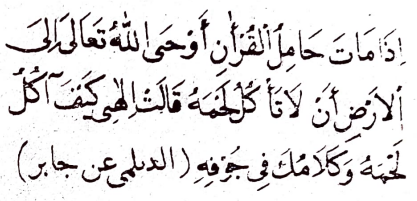 اِذَا مَاتَ حَامِلُ ٱلْقُرْاٰنِ أَوْحَى اللّٰهُ تَعَالٰى اِلَى
ٱلْاَرْضِ أَنْ لَا تَأْكُلَ لَحْمَهُ قَالَتْ اِلٰهِى كَيْفَ آكُلُ
لَحْمَهُ وَكَلَامُكَ فِى جَوْفِهِ (الديلمى عن جابر)